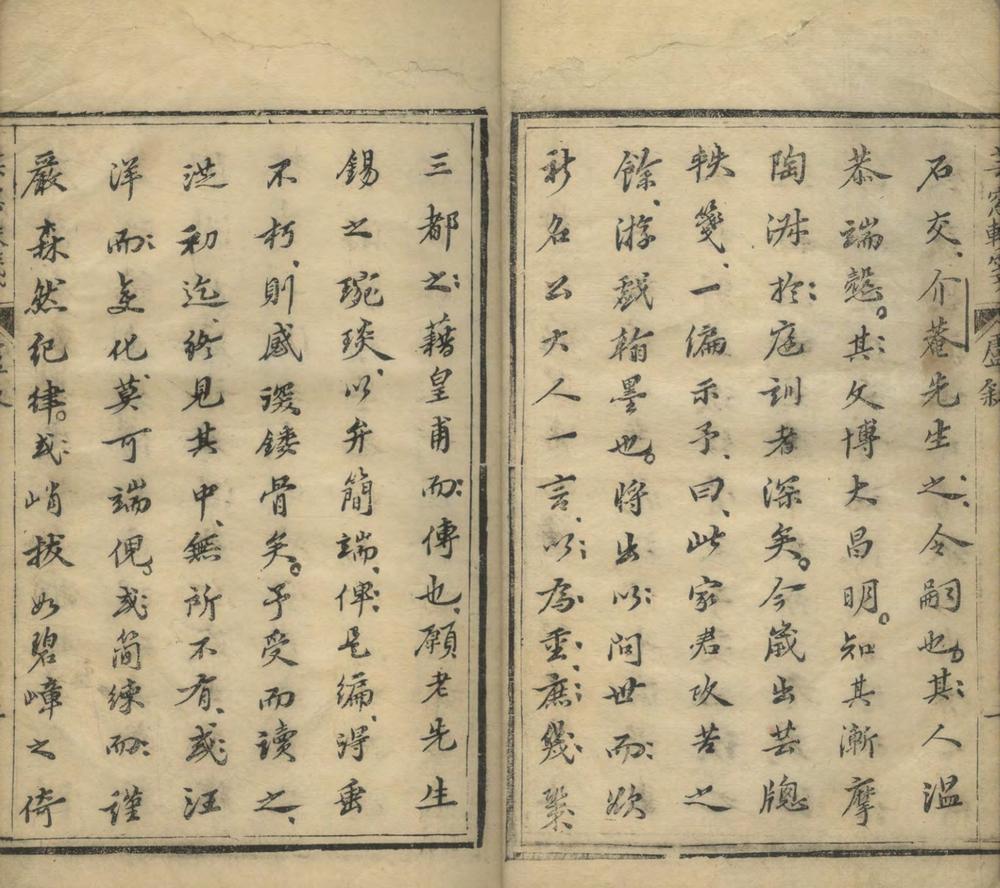 石交介菴先生之令嗣也其人溫
恭端慤其文博大昌明知其漸摩
陶淑於庭訓者深矣今歲出芸牕
軼箋一編示予曰此家君攻苦之
餘游戲翰墨也將出以問世而欲
祈名公大人一言以為重庶幾
三都之藉皇甫而傳也願老先生
錫之琬琰以弁簡端俾是編得垂
不朽則感謖鏤骨矣予受而讀之
從初迄終見其中無所不有或汪
洋而變化莫可端倪或簡練而謹
嚴森然紀律或峭拔如碧嶂之倚